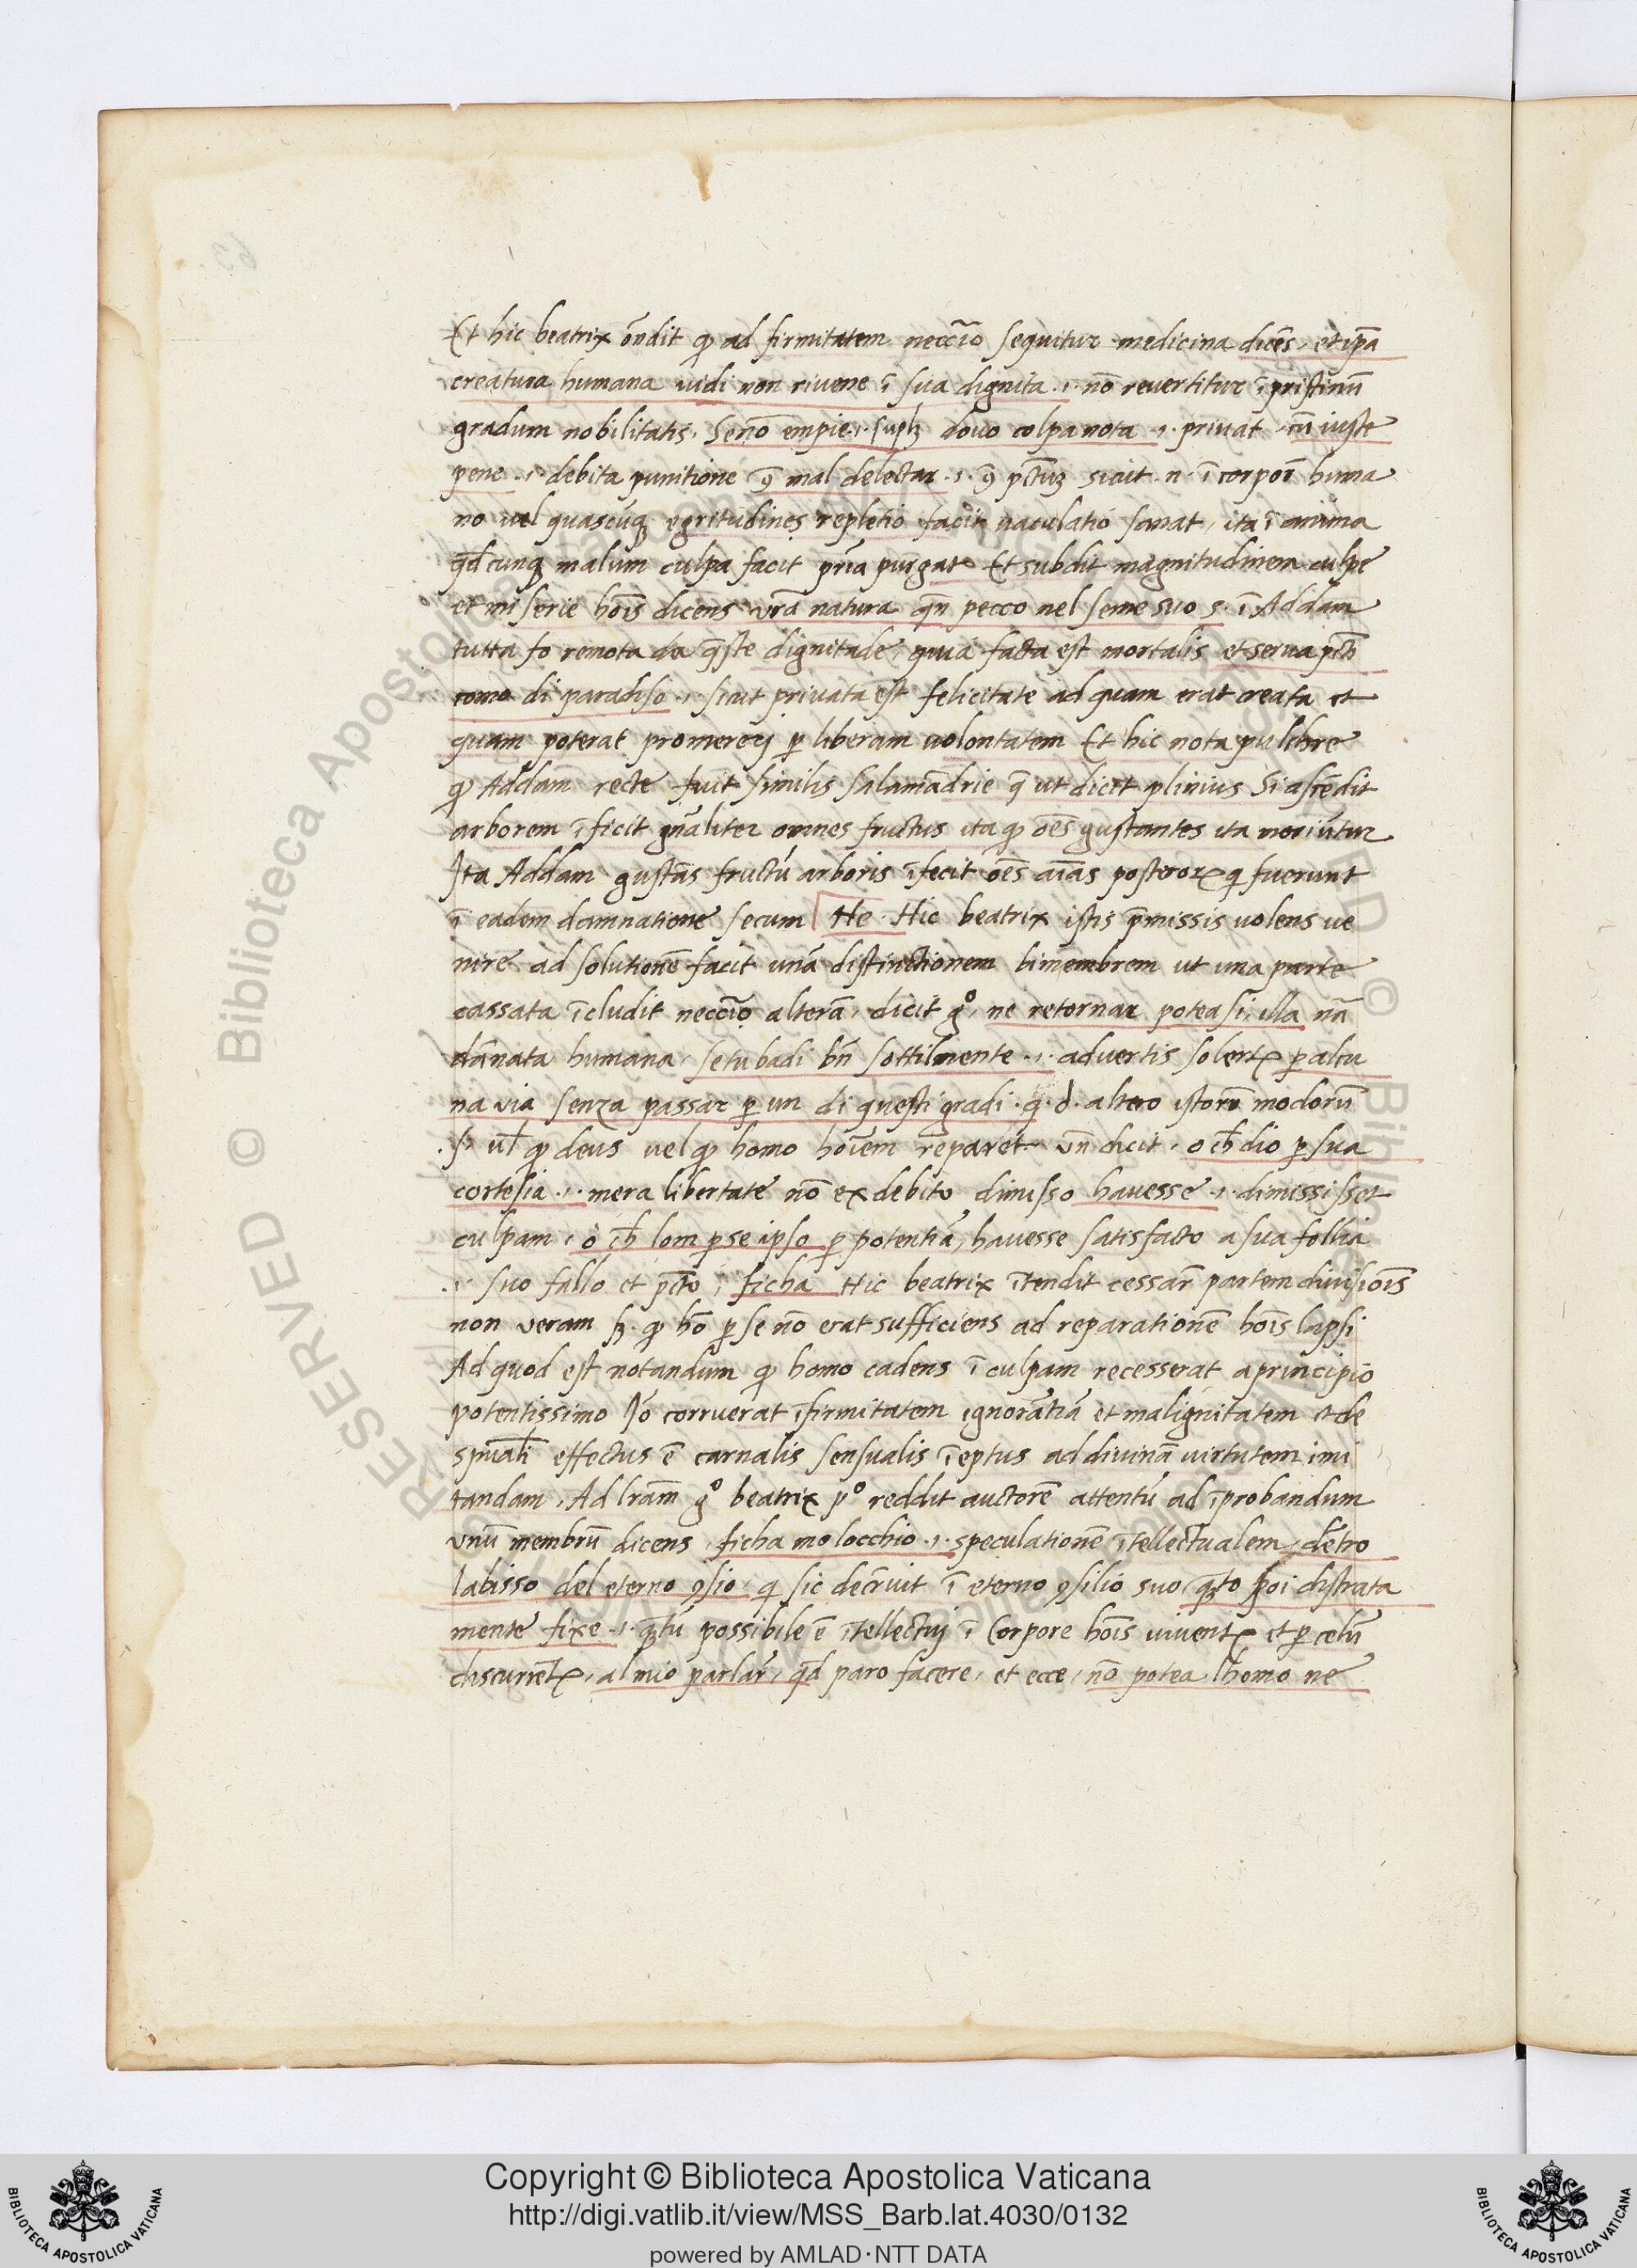 Et hic beatrix ōndit ꝙ ad firmitatem neccīo sequitur medicina dicēs, et ip̄a
creatura humana vidi non rivene ī sua dignita .ı. nō revertitur ī pristinū
gradum nobilitatis. Senō empie .ı. suplꝫ dovo colpa nota .ı. privat cū iuste
pene .ı. debita punitione ꝯ mal delectar .ı. ꝯ pc̄tuꝫ sicut .n. ī corpor̄ huma
no vel quascūqꝫ egritudines repletiō facit vaculatiō sanat, ita ī anima
qd̄cunqꝫ malum culpa facit pn̄ia purgat Et subdit magnitudinem culpe
et miserie hoīs dicens vr̄a natura qn̄ pecco nel seme suo s. ī Addam
tutta fo remota da q̄ste dignitade, quia facta est mortalis et serva pc̄ti
como di paradiso .ı. sicut privata est felicitate ad quam erat creata et
quam poterat promererj ꝑ liberam volontatem Et hic nota pulchre
ꝙ Addam recte fuit similis salamādrie q̄ ut dicit plinius Si ascēdit
arborem īficit gn̄aliter omnes fructus ita ꝙ oēs gustantes ita moriūtur
Ita Addam gustās fructū arboris īfecit oēs aīas posteroꝝ q fuerunt
ī eadem damnatione secum Ne. Hic beatrix istis p̄missis volens ve
nire ad solutionē facit unā distinctionem bimembrem ut una parte
cassata īcludit neccīo alterā, dicit gº, ne retornar potea si, illa nā
dānata humana, se tu badi bn̄ sottilmente .ı. advertis solertꝭ ꝑ alcu
na via senza passar ꝑ un di questi gradi .q. d. altero istorū modorū
.sꝫ. vl̄ ꝙ deus vel ꝙ homo hoīem reparet vn̄ dicit, o ch̄ dio ꝑ sua
cortesia .ı. mera libertate nō ex debito dimisso havesse .ı. dimississet
culpam, ò ch̄ lom ꝑ se ipso ꝑ potentiā, havesse satisfacto a sua follia
.ı. suo fallo et pc̄to, ficha Hic beatrix ītendit cessar̄ partem divisiōis
non veram sꝫ. ꝙ hō ꝑ se nō erat sufficiens ad reparationē hoīs lapsi
Ad quod est notandum ꝙ homo cadens ī culpam recesserat a principio
potentissimo Iō corruerat īfirmitatem ignorātiā et malignitatem et de
sp̄uali effectus ē carnalis sensualis īeptus ad divinā virtutem imi
tandam, Ad lr̄am gº beatrix pº reddit auctorē attentū ad īprobandum
vnū membrū dicens, ficha mo locchio .ı. speculationē ītellectualem, dētro
labisso del eterno ꝯsio, q sic decrevit ī eterno ꝯsilio suo, qꝫto poi distrata
mente fixe .ı. qꝫtū possibile ē ītellectuj ī Corpore hoīs viventꝭ et ꝑ celū
discurrētꝭ, al mio parlar̄, qd̄ paro facere, et ecce, nō potea lhomo ne
Copyright © Biblioteca Apostolica Vaticana
http://digi.vatlib.it/view/MSS_Barb.lat.4030/0132
powered by AMLAD·NTT DATA